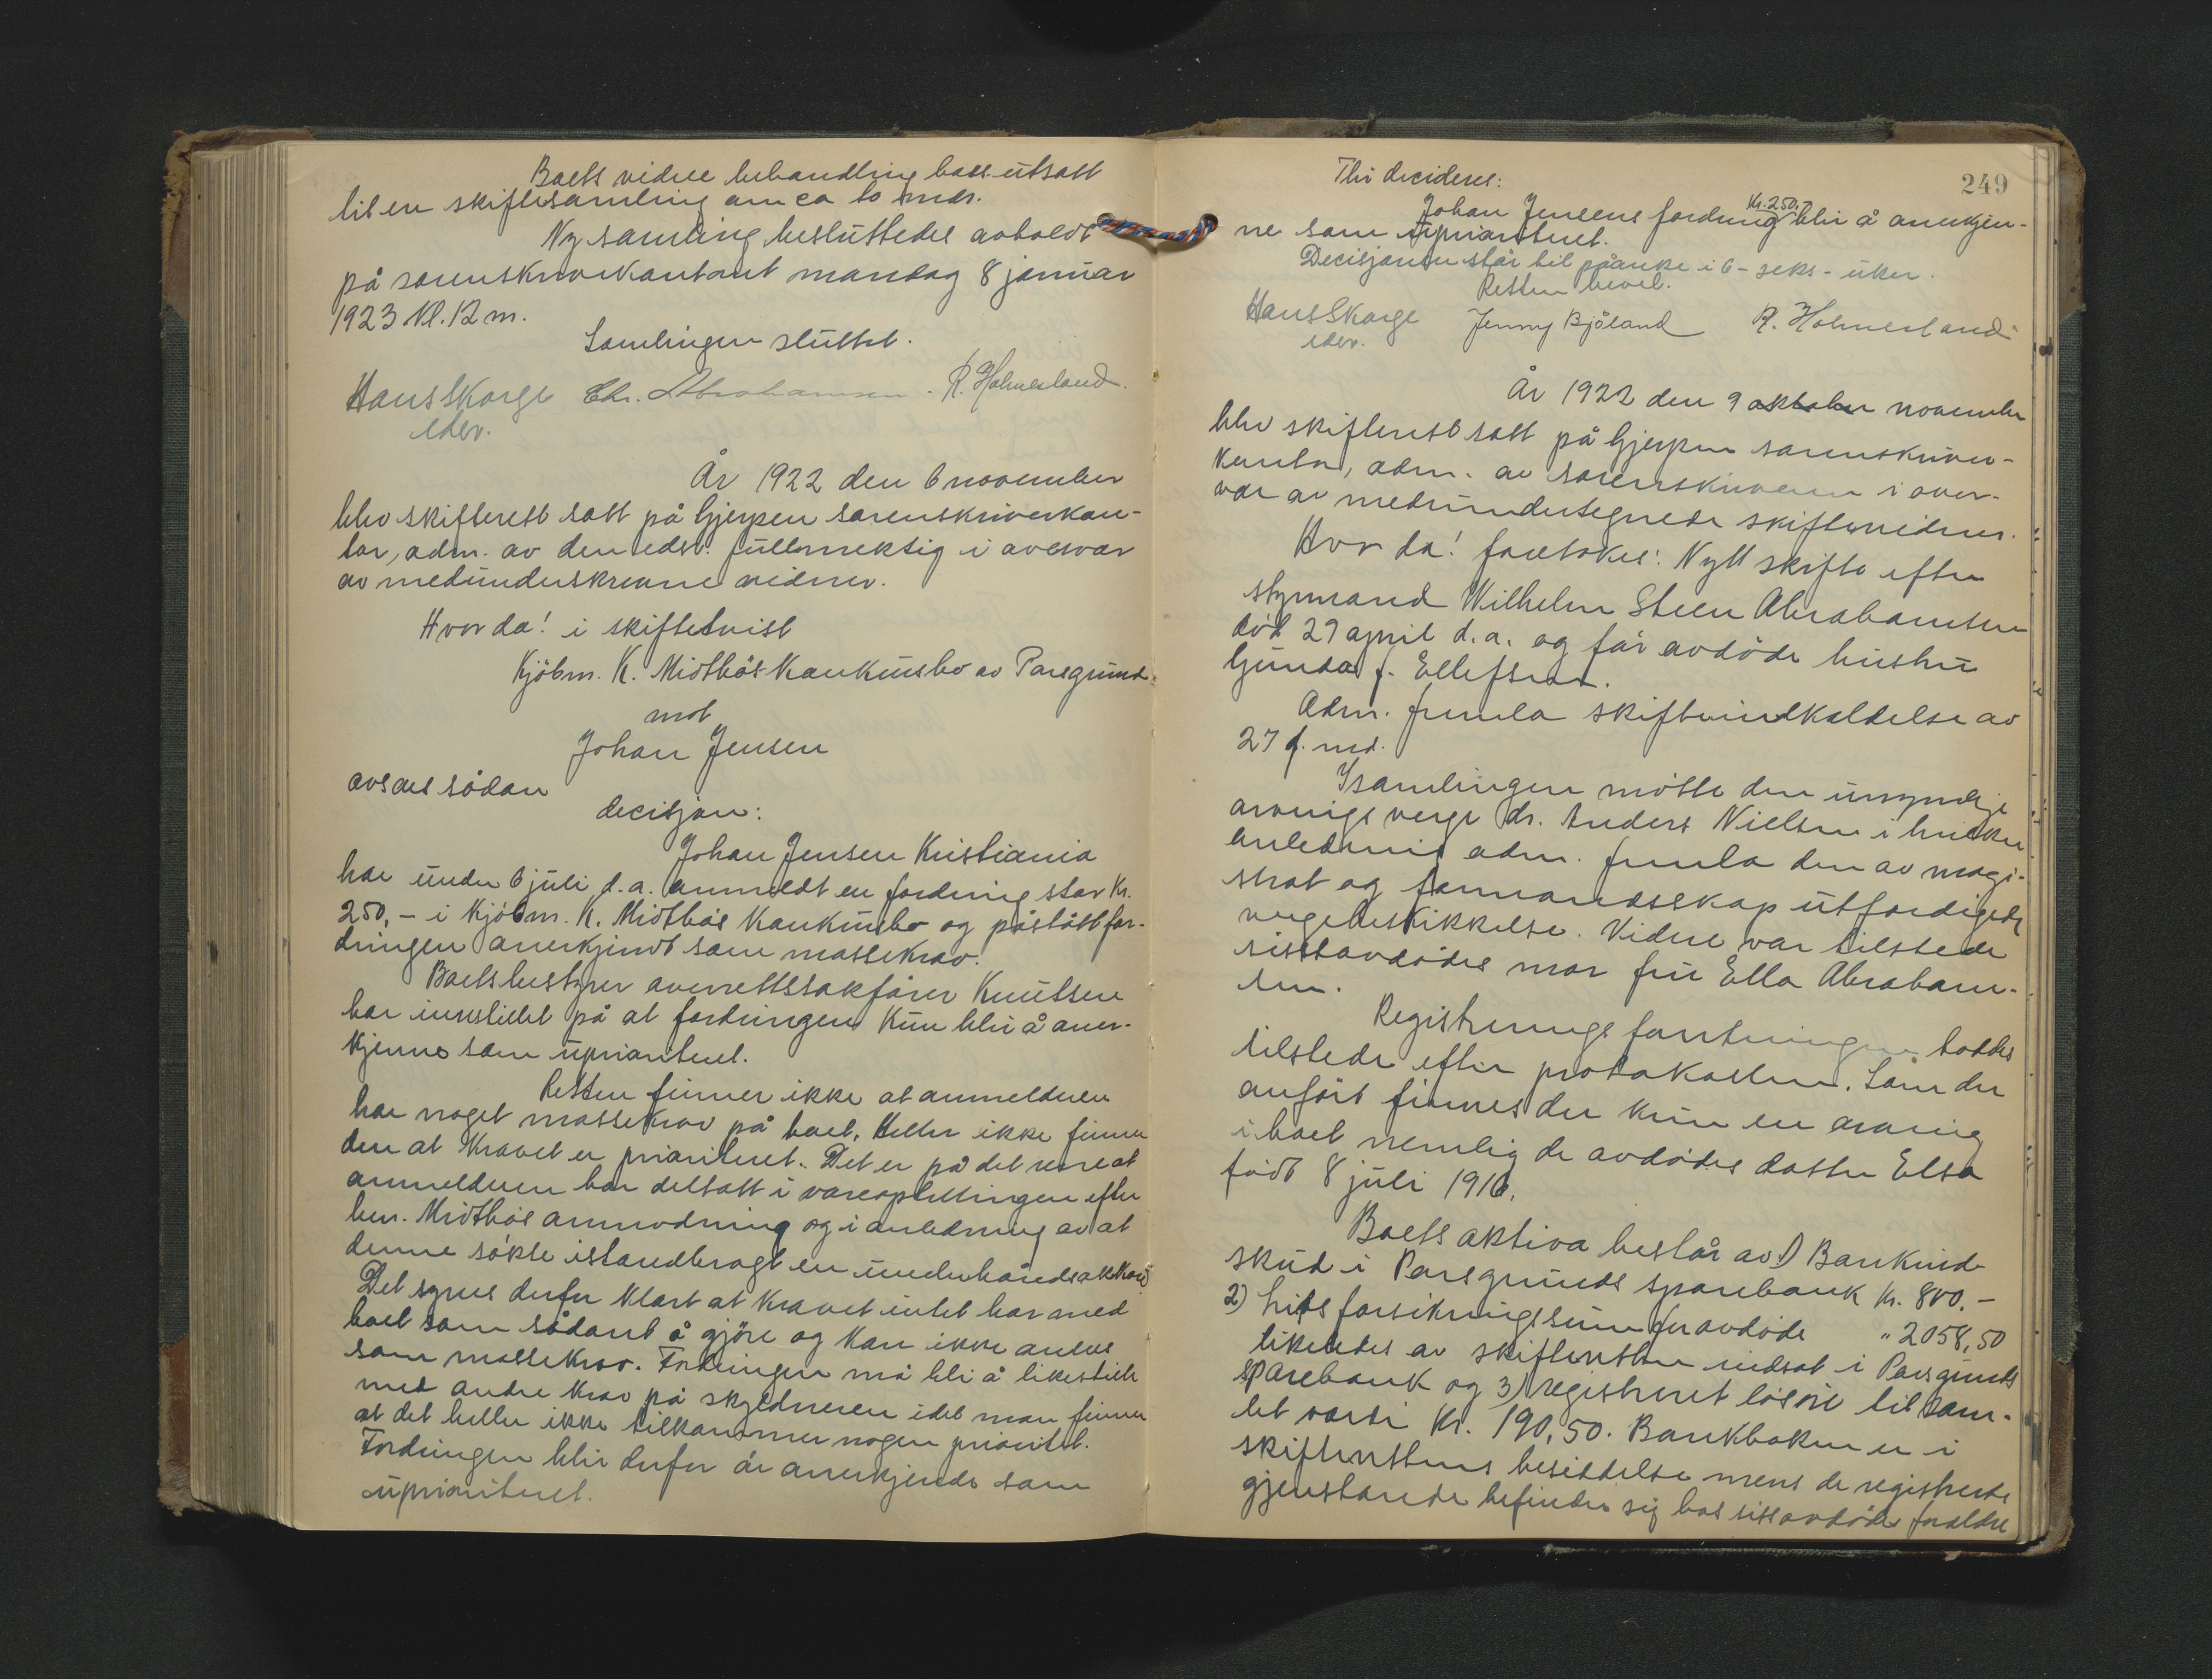 Boets videre behandling bates utsatt
til en skiftesamling om ca to mdr.
Ny samling besluttedes avholdt
på sorenskriverkontoret mandag 8 januar
1923 kl. 12 m.
Samlingen sluttet.
Hans Skarge Chr. Abrahamsen. R. Holmesland.
edsv.
År 1922 den 6 november
blev skifterett satt på Gjerpen sorenskriverkon-
tor, adm. av den edsv. fullmektig i overvær
av medunderskrevne vidner.
Hvorda! i skiftetvist
Kjöbm. K. Midtbös Konkursbo av Porsgrund
mot
Johan Jensen
avsaes sådan
decisjon:
Johan Jensen Kristiania
har under 6 juli d.a. anmeldt en fordring stor Kr.
250,- i Kjöbm. K. Midtbös Konkursbo og påstått for-
dringen anerkjendt som massekrav.
Boets bestyrer overrettssakförer Knutsen
har innstillet på at fordringen kun blir å aner-
kjenne som uprioritert.
Retten finner ikke at anmelderen
har noget massekrav på boet. Heller ikke finner
den at kravet er prioritert. Det er på det rene at
anmelderen har deltatt i vareoptellingen efter
hrr. Midtbös anmodning og i anledning av at
denne sökte istandbragt en underhåndsakkord
Det synes derfor klart at kravet intet har med
boet som sådant å gjöre og kan ikke anses
som massekrav. Fordringen må bli å likestille
med andre krav på skyldneren idet man finner
at det heller ikke tilkommer nogen prioritet.
Fordringen blir derfor å anerkjende som
uprioritert.
249
Thi decideres:
Kr. 250,-
Johan Jensens fordring blir å anerkjen-
ne som uprioritert.
Decisjonen står til påanke i 6 - seks - uker.
Retten hevet.
Hans Skarge Jenny Bjåland R. Holmesland
edsv.
År 1922 den 9 oktober november
blev skifterett satt på Gjerpen sorenskriver-
kontor, adm. av sorenskriveren i over-
vær av medundertegnede skiftevidner.
Hvorda! foretokes: Nytt skifte efter
styrmand Wilhelm Steen Abrahamsen
död 29 april d.a. og før avdöde hustru
Gunda f. Ellefsen.
Adm. fremla skifteindkaldelse av
27 f. md.
I samlingen mötte den umyndige
arvings verge dr. Anders Nielsen i hvilken
anledning adm. fremla den av magi-
strat og formandsskap utferdigede
vergebeskikkelse. Videre var tilstede
sistavdödes mor fru Ella Abraham-
sen.
Registreringsforretningen toddes
tilstede efter protokollen. Som der
anfört finnes der kun en arving
i boet nemlig de avdödes datter Elsa
födt 8 juli 1916.
Boets aktiva består av 1) Bankind-
skud i Porsgrunds sparebank kr. 800.-
2) livsforsikringssum for avdöde " 2058,50
likeledes av skifteretten indsat i Porsgrunds
sparebank og 3) registreret lösöre til sam-
let værdi kr. 190,50. Bankboken er i
skifterettens besiddelse mens de registrerte
gjenstande befinder sig hos sistavdödes foreldre